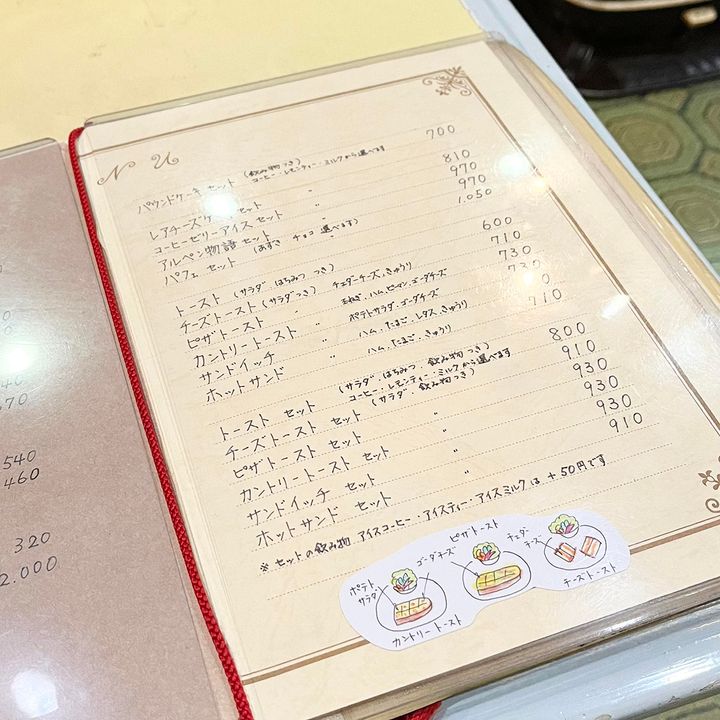 NU
パウンドケーキ セット (飲み物つき) 700
コーヒー・レモンティー・ミルクから選べます
レアチーズケーキ セット 〃 810
コーヒーゼリーアイス セット 〃 970
アルペン物語 セット 970
パフェ セット (あずき チョコ 選べます) 〃 1.050
トースト (サラダ はちみつ つき) 600
チーズトースト (サラダつき) チェダーチーズ、きゅうり 710
ピザトースト 〃 玉ねぎ、ハム、ピーマン、ゴーダチーズ 730
カントリートースト 〃 ポテトサラダ、ゴーダチーズ 730
サンドイッチ 〃 ハム、たまご、レタス、きゅうり
ホットサンド 〃 ハム、たまご、きゅうり 710
トースト セット (サラダ はちみつ 飲み物 つき) 800
コーヒー・レモンティー・ミルクから選べます
チーズトースト セット (サラダ・飲み物つき) 910
ピザトースト セット 〃 930
カントリートースト セット 〃 930
サンドイッチ セット 〃 930
ホットサンド セット 〃 910
※セットの飲み物 アイスコーヒー・アイスティー・アイスミルクは +50円です
ポテトサラダ
ゴーダチーズ
カントリートースト
ピザトースト
チェダーチーズ
チーズトースト
540
460
320
2.000